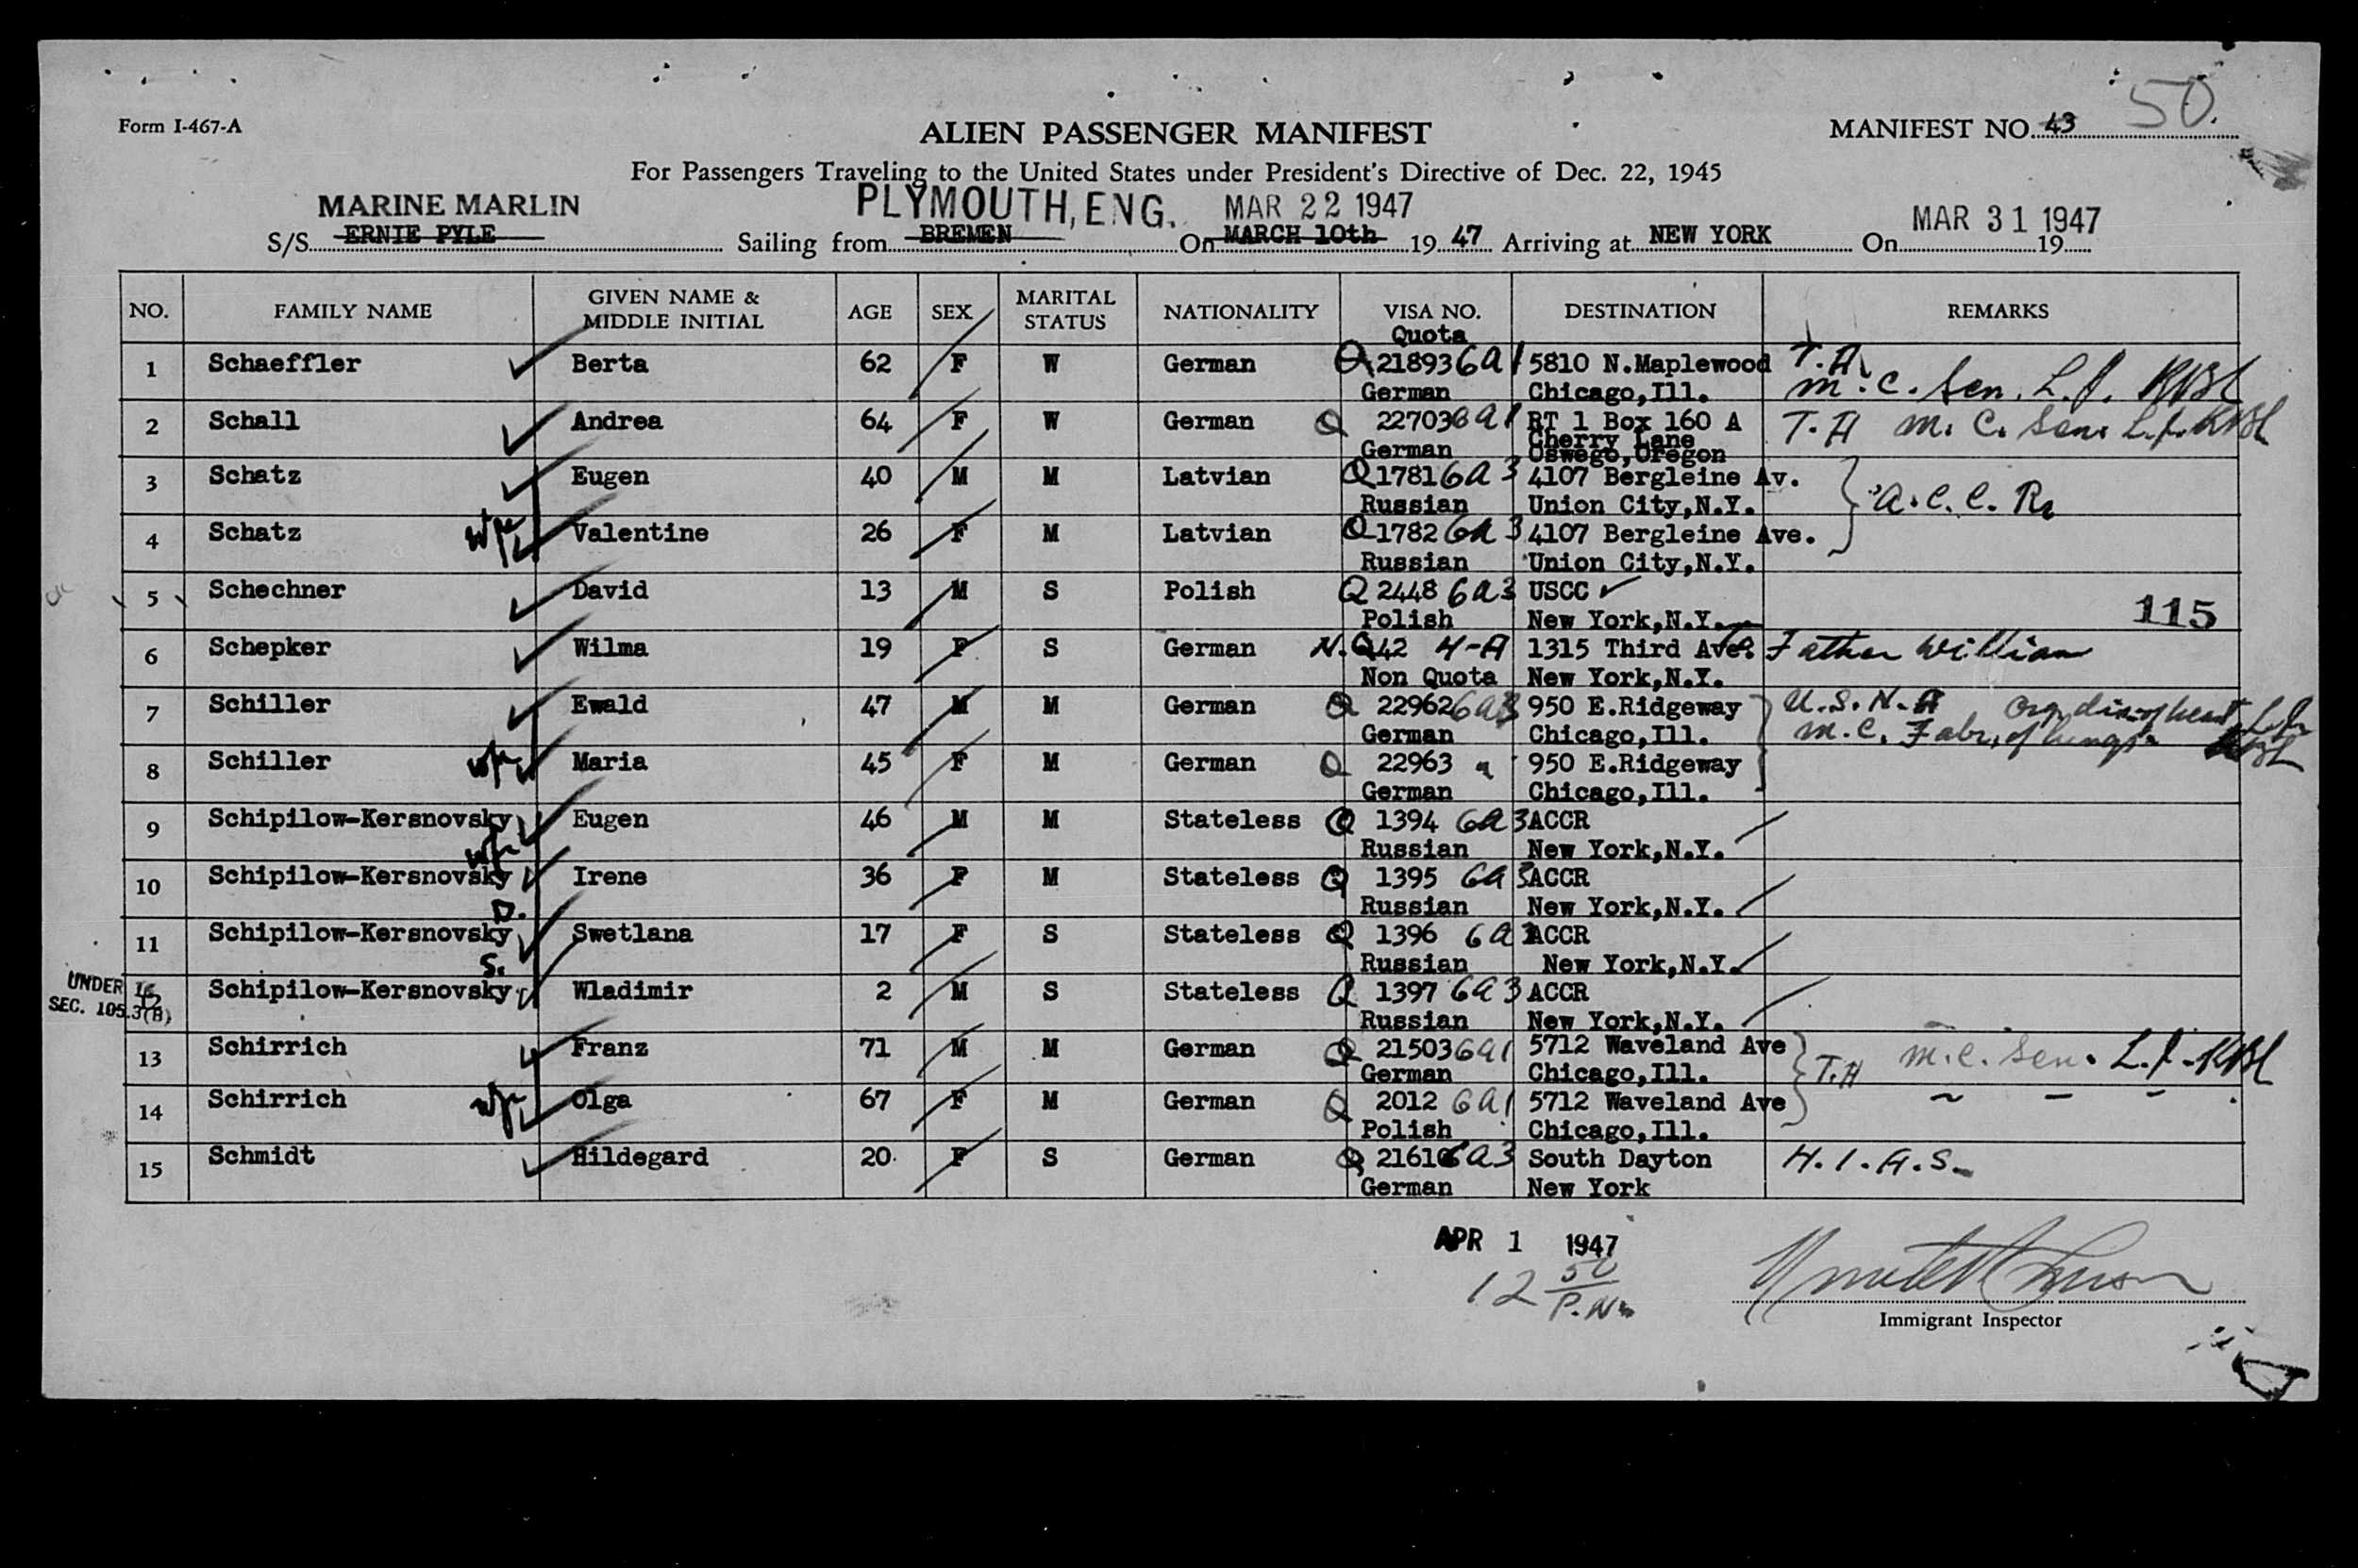 50
Form I-467-A
ALIEN PASSENGER MANIFEST
MANIFEST NO. 43
For Passengers Traveling to the United States under President's Directive of Dec. 22, 1945
MARINE MARLIN PLYMOUTH, ENG. MAR 22 1947 MAR 31 1947
S/S ERNIE PYLE Sailing from BREMEN On MARCH 10th 19 47 Arriving at NEW YORK On 19
NO. FAMILY NAME GIVEN NAME & MIDDLE INITIAL AGE SEX MARITAL STATUS NATIONALITY VISA NO. DESTINATION REMARKS
Quota
1 Schaeffler Berta 62 F W German Q 21893 6a1 5810 N.Maplewood T.A.
German Chicago,Ill. M.C. Sen. L.J.
2 Schall Andrea 64 F W German Q 22703 6a1 RT 1 Box 160 A T.A M.C. Sen. L.J.
Cherry Lane
German Oswego,Oregon
3 Schatz Eugen 40 M M Latvian Q 1781 6a3 4107 Bergleine Av.
Russian Union City,N.Y. A.C.C.R.
4 Schatz Valentine 26 F M Latvian Q 1782 6a3 4107 Bergleine Ave.
Russian Union City,N.Y.
5 Schechner David 13 M S Polish Q 2448 6a3 USCC
Polish New York,N.Y. 115
6 Schepker Wilma 19 F S German N.Q 42 4-A 1315 Third Ave. Father William
Non Quota New York,N.Y.
7 Schiller Ewald 47 M M German Q 22962 6a3 950 E.Ridgeway U.S.N.A
German Chicago,Ill. M.C. of lungs
8 Schiller Maria 45 F M German Q 22963 " 950 E.Ridgeway
German Chicago,Ill.
9 Schipilow-Kersnovsky Eugen 46 M M Stateless Q 1394 6a3 ACCR
Russian New York,N.Y.
10 Schipilow-Kersnovsky Irene 36 F M Stateless Q 1395 6a3 ACCR
D. Russian New York,N.Y.
11 Schipilow-Kersnovsky Swetlana 17 F S Stateless Q 1396 6a3 ACCR
S. Russian New York,N.Y.
UNDER 16 12 Schipilow-Kersnovsky Wladimir 2 M S Stateless Q 1397 6a3 ACCR
SEC. 105.3(B) Russian New York,N.Y.
13 Schirrich Franz 71 M M German Q 21503 6a1 5712 Waveland Ave T.A M.C. Sen. L.J.
German Chicago,Ill.
14 Schirrich Olga 67 F M German Q 2012 6a1 5712 Waveland Ave
Polish Chicago,Ill.
15 Schmidt Hildegard 20 F S German Q 21616 6a3 South Dayton H.I.A.S.
German New York
APR 1 1947
12 50 P.M.
Immigrant Inspector